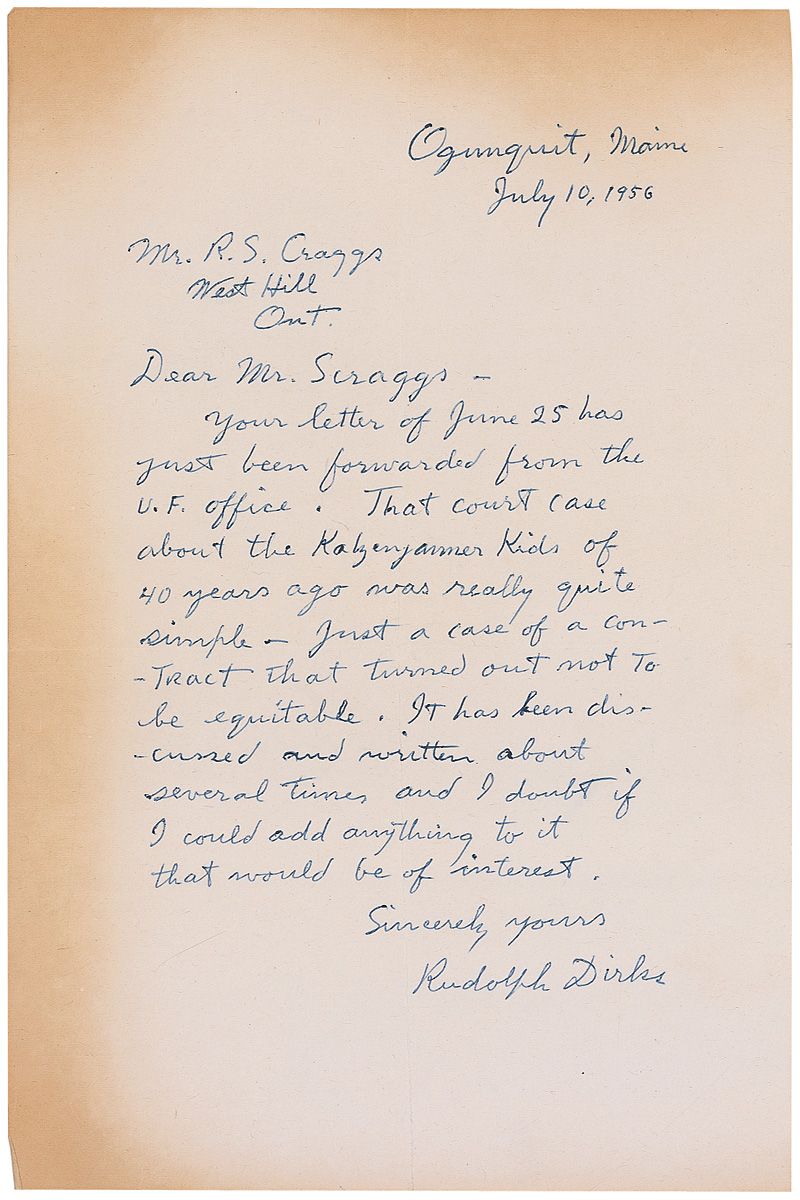 Ogunquit, Maine
July 10, 1956
Mr. R. S. Craggs
West Hill
Ont.
Dear Mr. Scraggs –
Your letter of June 25 has
just been forwarded from the
U.F. office. That court case
about the Katzenjammer Kids of
40 years ago was really quite
simple – Just a case of a con-
-tract that turned out not to
be equitable. It has been dis-
-cussed and written about
several times and I doubt if
I could add anything to it
that would be of interest.
Sincerely yours
Rudolph Dirks